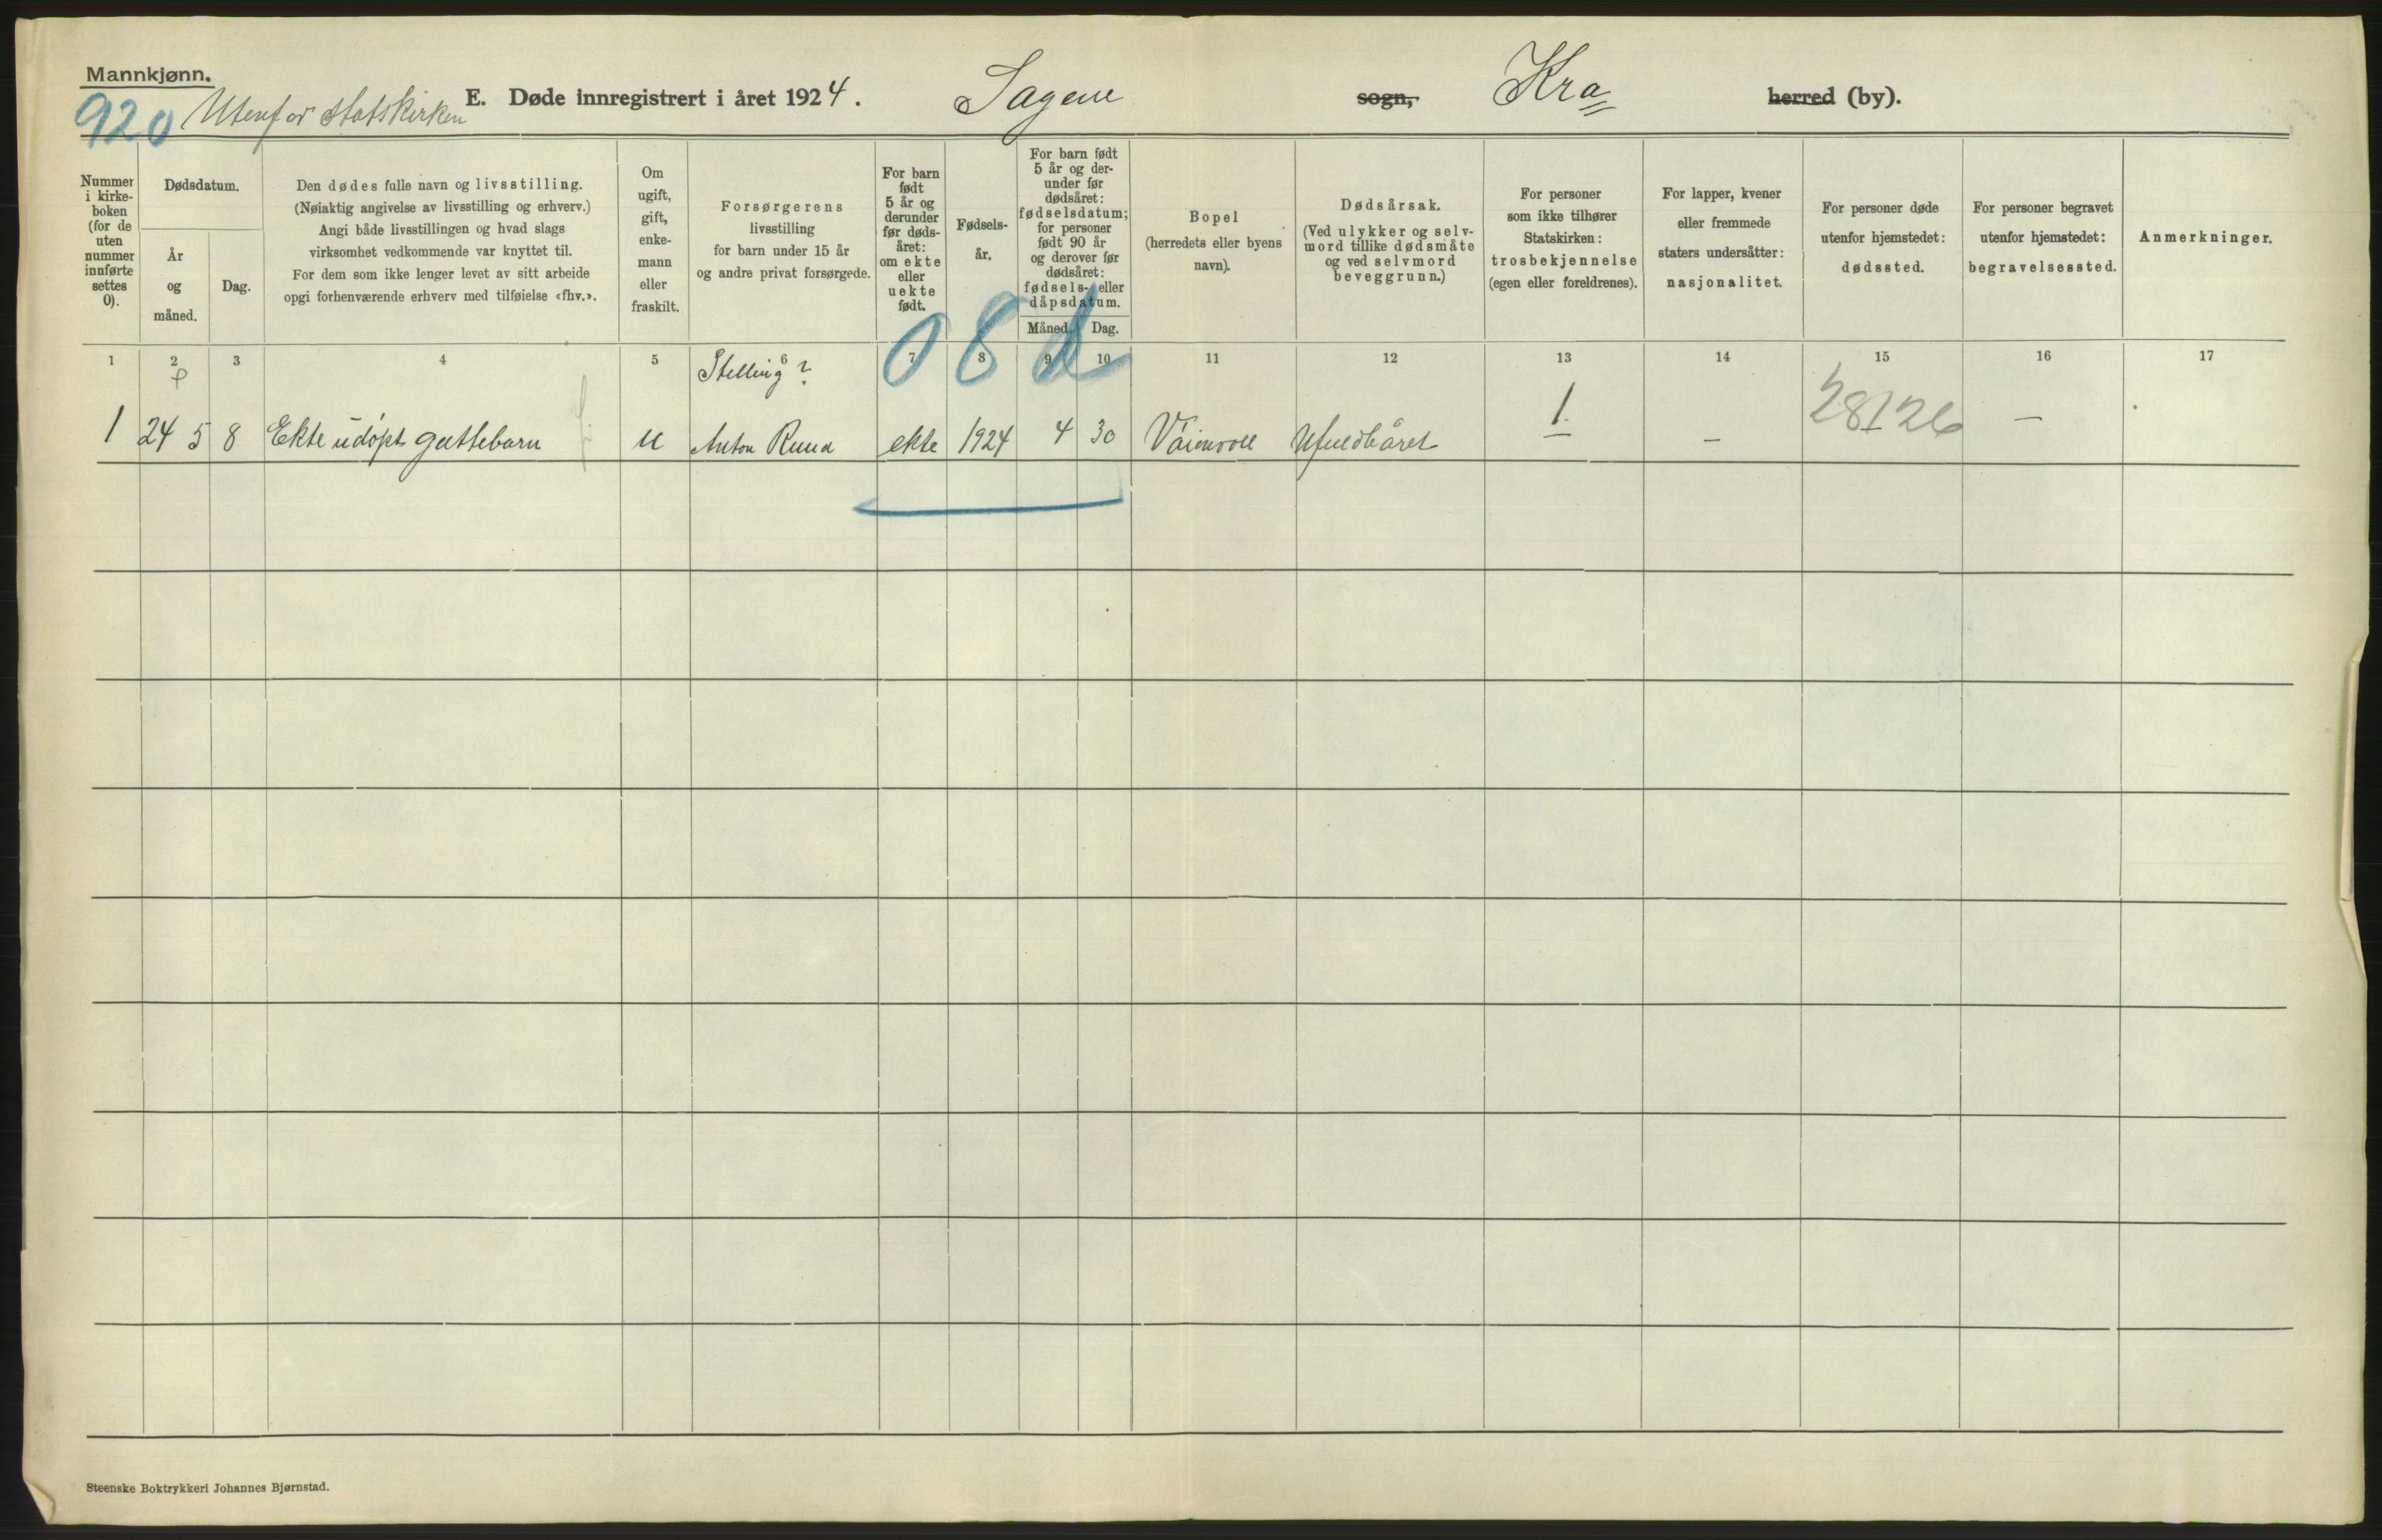 Mannkjønn.
920 Utenfor statskirken E. Døde innregistrert i året 1924. Sagene sogn, Kra herred (by).
Nummer i kirke-boken (for de uten nummer innførte settes 0).
Dødsdatum.
År og måned.
Dag.
Den dødes fulle navn og livsstilling.
(Nøiaktig angivelse av livsstilling og erhverv.)
Angi både livsstillingen og hvad slags
virksomhet vedkommende var knyttet til.
For dem som ikke lenger levet av sitt arbeide
opgi forhenværende erhverv med tilføielse «fhv.».
Om
ugift,
gift,
enke-
mann
eller
fraskilt.
Forsørgerens
livsstilling
for barn under 15 år
og andre privat forsørgede.
For barn
født
5 år og
derunder
før døds-
året:
om ekte
eller
uekte
født.
Fødsels-
år.
For barn født
5 år og der-
under før
dødsåret:
fødselsdatum;
for personer
født 90 år
og derover før
dødsåret:
fødsels- eller
dåpsdatum.
Måned. Dag.
Bopel
(herredets eller byens
navn).
Dødsårsak.
(Ved ulykker og selv-
mord tillike dødsmåte
og ved selvmord
beveggrunn.)
For personer
som ikke tilhører
Statskirken:
trosbekjennelse
(egen eller foreldrenes).
For lapper, kvener
eller fremmede
staters undersåtter:
nasjonalitet.
For personer døde
utenfor hjemstedet:
dødssted.
For personer begravet
utenfor hjemstedet:
begravelsessted.
Anmerkninger.
1 2 3 4 5 6 7 8 9 10 11 12 13 14 15 16 17
Stelling?
08
1 24 5 8 Ekte udøpt guttebarn u Anton Ruud ekte 1924 4 30 Ufuldbåret 1. – 28126 –
Steenske Boktrykkeri Johannes Bjørnstad.